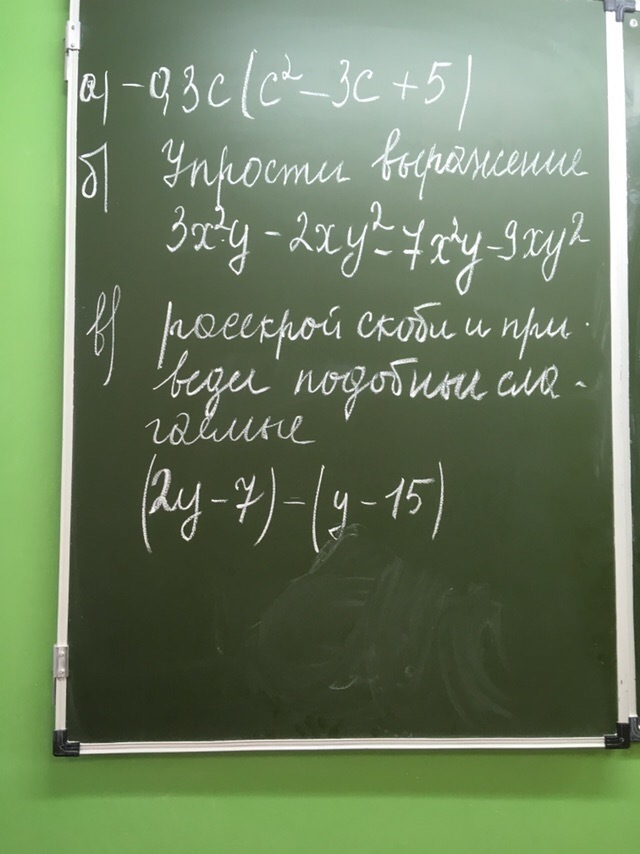 а) -0,3c(c² - 3c + 5)
б) Упрости выражение
3x²y - 2xy² - 7x²y - 9xy²
в) расскрой скобки и при-
веди подобные сла-
гаемые
(2y - 7) - (y - 15)